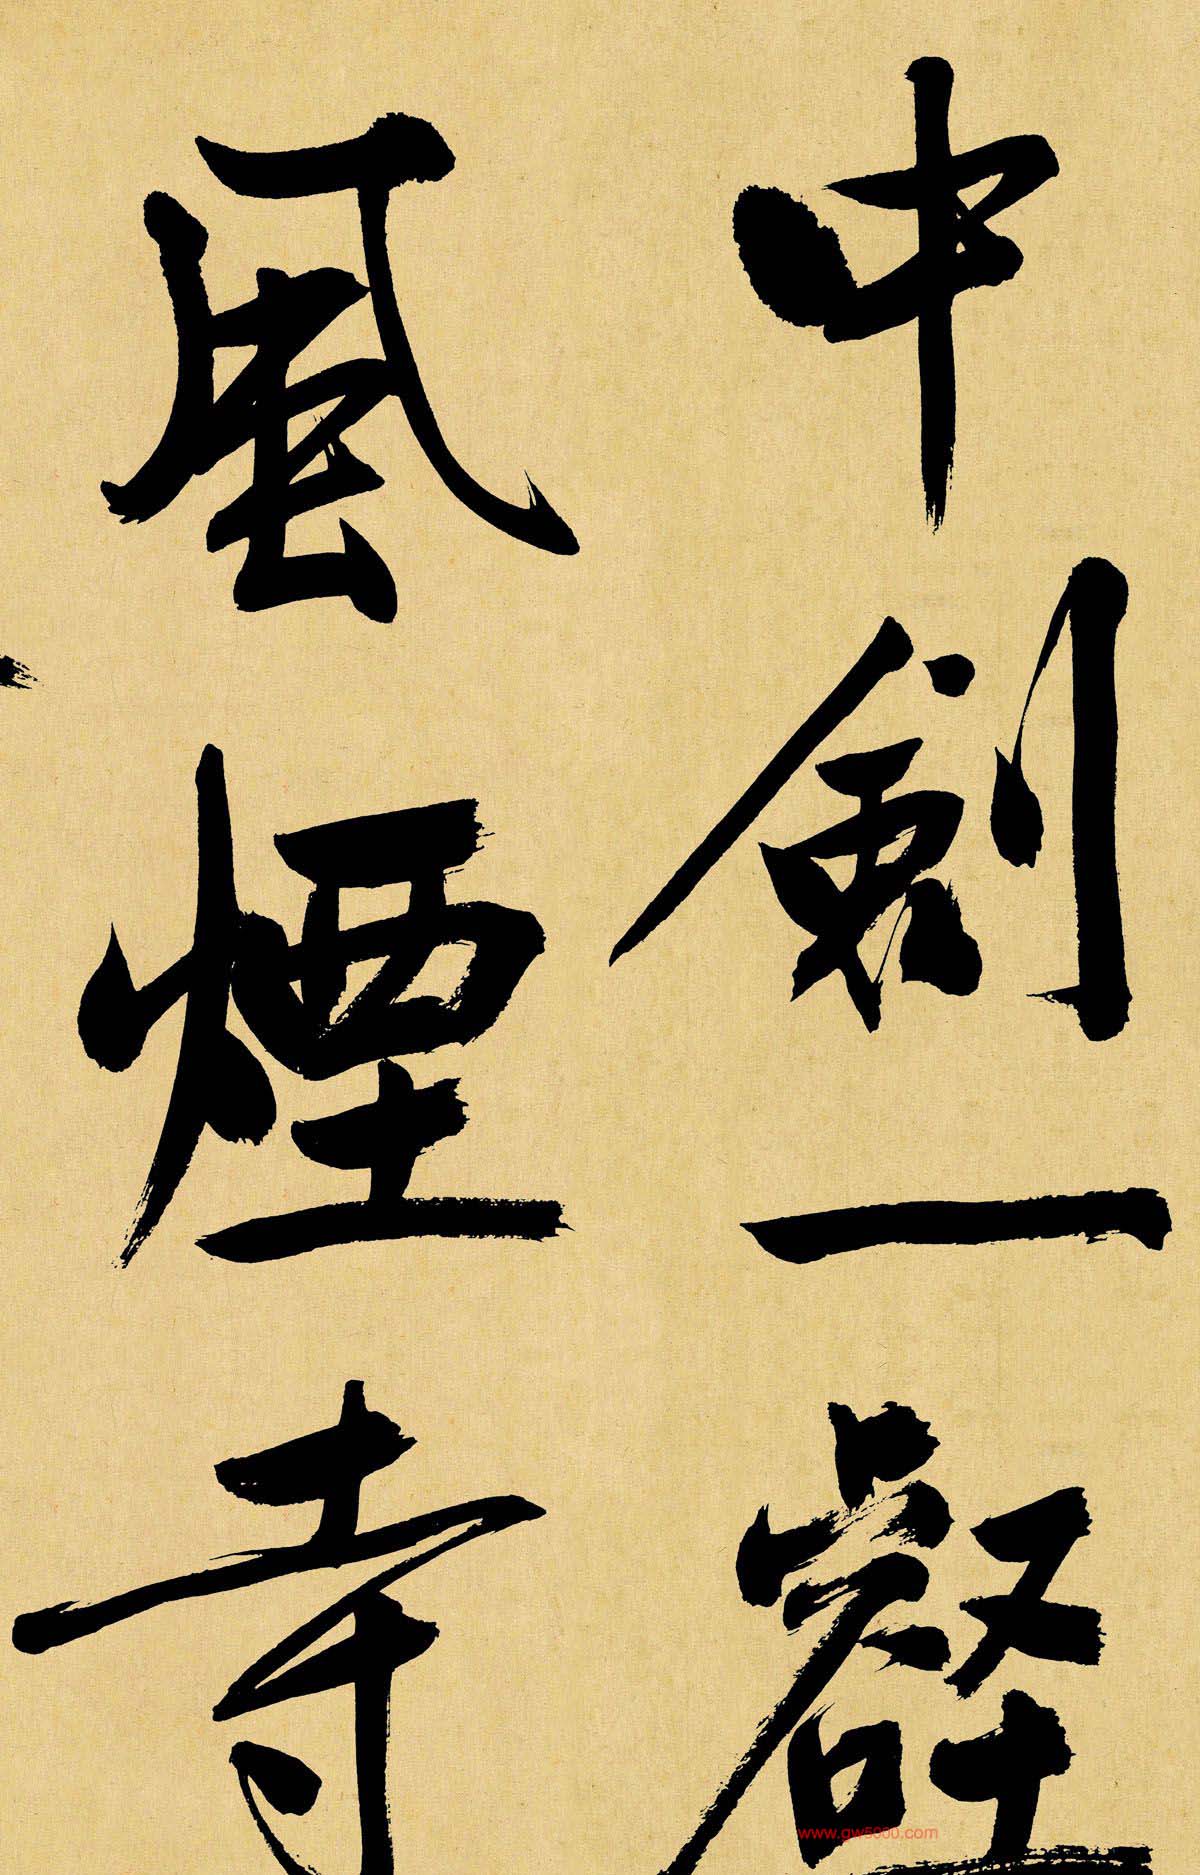 中劍一壑
風煙寺
www.gw5000.com